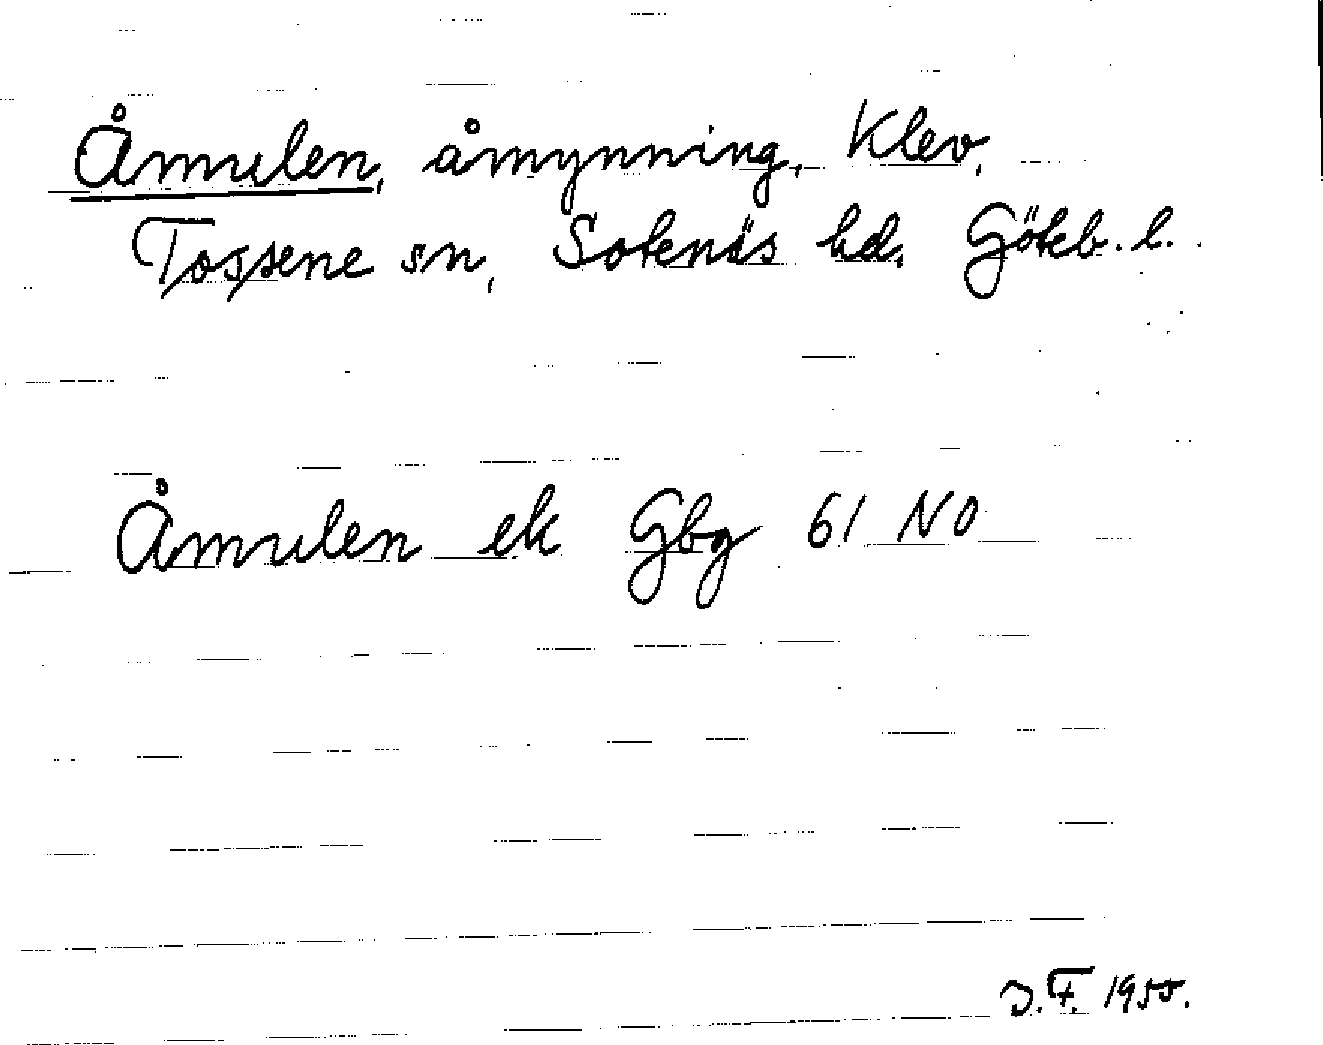 Åmulen, åmynning, Klev,
Tossene sn, Sotenäs hd. Göteb. l.
Åmulen ek Gbg 61 NO
J.F. 1955.